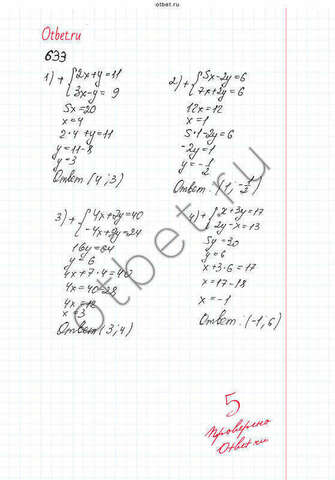 otbet.ru
Otbet.ru
633
1) + { 2x+y=11
3x-y= 9
5x=20
x=4
2·4+y=11
y=11-8
y=3
Ответ (4;3)
2) + { 5x-2y=6
7x+2y=6
12x=12
x=1
5·1-2y=6
-2y=1
y=-1/2
Ответ: (1; -1/2)
3) +
-4x+9y=24
4x+7·4=40
4x=40-28
4x=12
x=3
Ответ (3;4)
4) +
2y-x=13
y=6
x+3·6=17
x=17-18
x=-1
Ответ: (-1;6)
otbet.ru
5
проверено
Otbet.ru